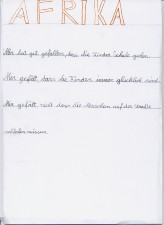 AFRIKA
Mir hat gut gefallen, dass die Kinder Schule gehen.
Mir gefällt, dass die Kinder immer glücklich sind.
Mir gefällt nicht dass die Menschen auf der Straße
müssen.